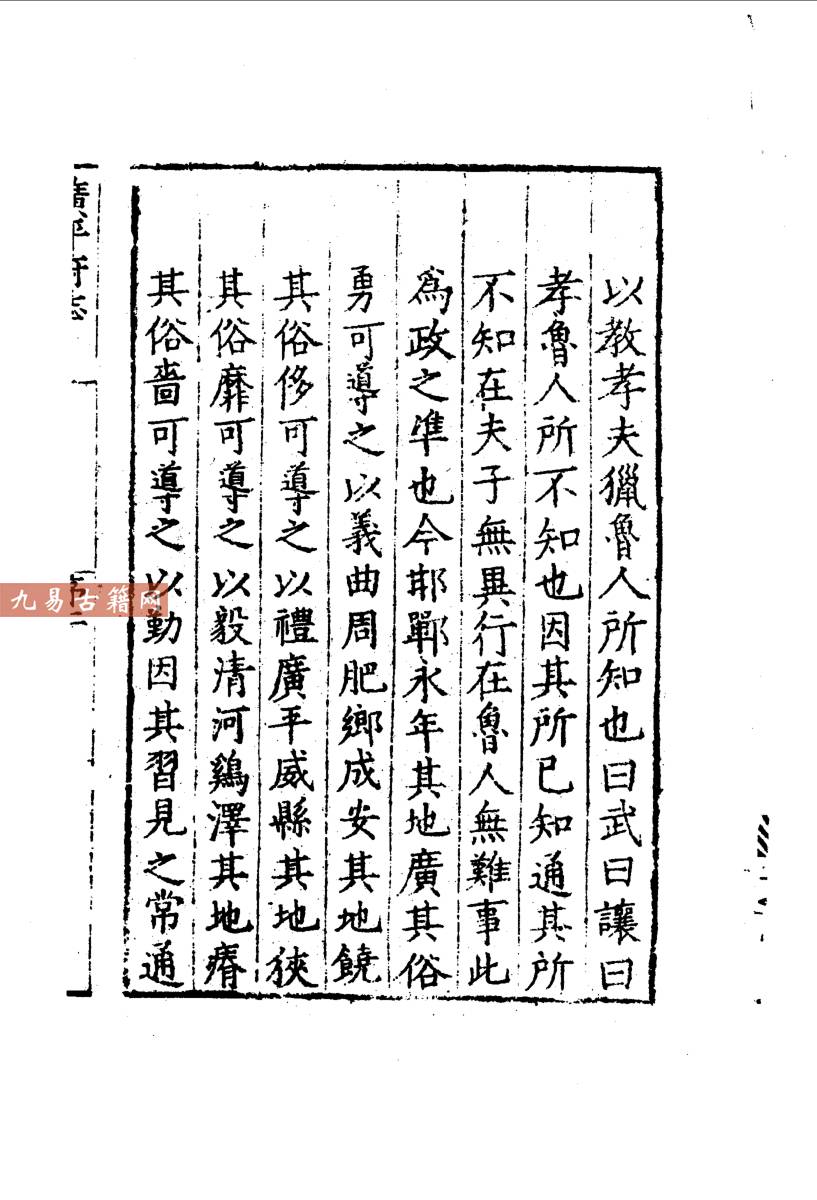 以教孝夫獵魯人所知也曰武曰讓曰
孝魯人所不知也因其所已知通其所
不知在夫子無異行在魯人無難事此
爲政之準也今邯鄲永年其地廣其俗
勇可導之以義曲周肥鄉成安其地饒
其俗侈可導之以禮廣平威縣其地狹
其俗靡可導之以毅清河鷄澤其地瘠
其俗嗇可導之以勤因其習見之常通
廣平府志
九易古籍网